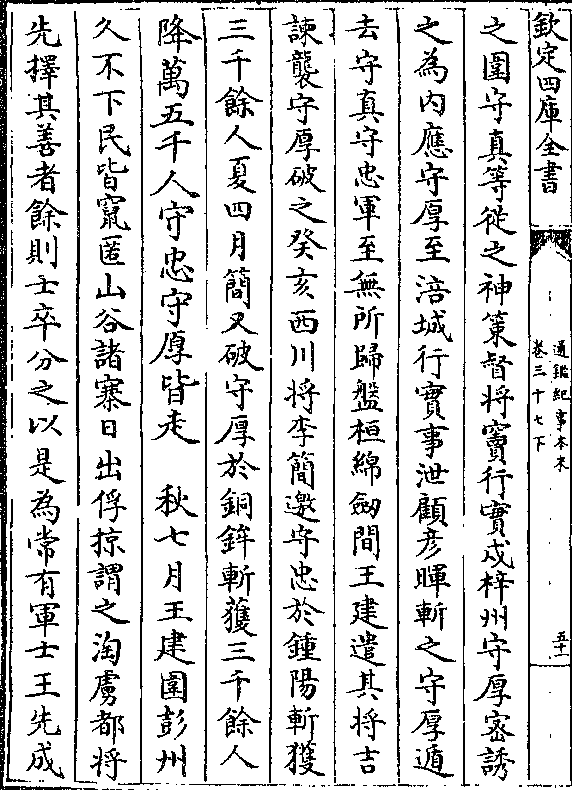 欽定四庫全書
通鑑紀事本末
卷三十七下
五十
之圍守真等從之神策督將竇行實戍梓州守厚密誘
之為内應守厚至涪城行實事泄顧彦暉斬之守厚遁
去守真守忠軍至無所歸盤桓綿劒間王建遣其將吉
諫襲守厚破之癸亥西川將李簡邀守忠於鍾陽斬獲
三千餘人夏四月簡又破守厚於銅鉾斬獲三千餘人
降萬五千人守忠守厚皆走　秋七月王建圍彭州
久不下民皆竄匿山谷諸寨日出俘掠謂之淘虜都將
先擇其善者餘則士卒分之以是為常有軍士王先成